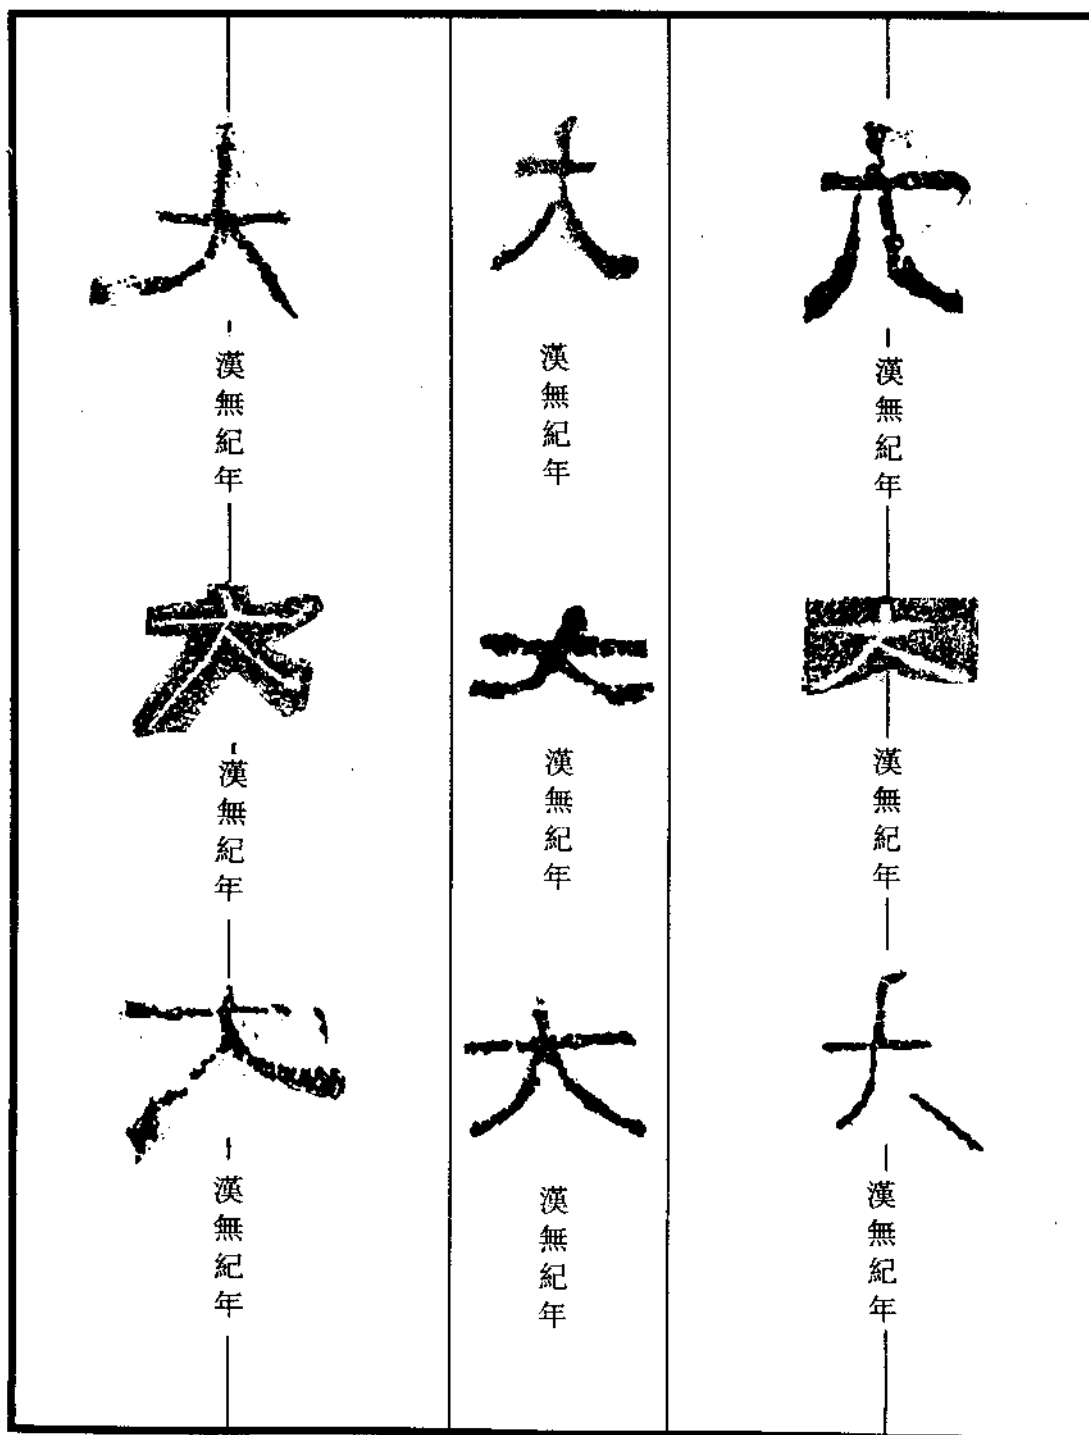 大
漢無紀年
大
漢無紀年
大
漢無紀年
大
漢無紀年
大
漢無紀年
大
漢無紀年
大
漢無紀年
大
漢無紀年
大
漢無紀年